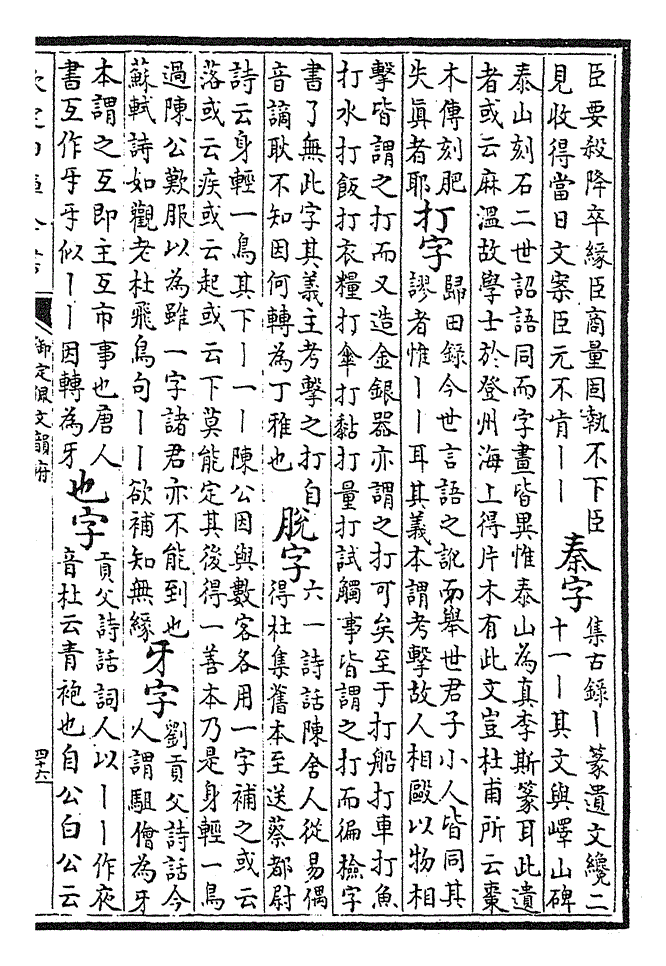 臣要殺降卒緣臣商量固執不下臣
見收得當日文案臣元不肯丨丨
秦字
集古錄丨篆遺文纔二
十一丨其文與嶧山碑
泰山刻石二世詔語同而字畫皆異惟泰山為真李斯篆耳此遺
者或云麻溫故學士於登州海上得片木有此文豈杜甫所云棗
木傳刻肥
失真者耶
打字
歸田錄今世言語之訛而舉世君子小人皆同其
謬者惟丨丨耳其義本謂考擊故人相毆以物相
擊皆謂之打而又造金銀器亦謂之打可矣至于打船打車打魚
打水打飯打衣糧打傘打黏打量打試觸事皆謂之打而徧檢字
書了無此字其義主考擊之打自
音謫耿不知因何轉為丁雅也
脫字
六一詩話陳舍人從易偶
得杜集舊本至送蔡都尉
詩云身輕一鳥其下丨一丨陳公因與數客各用一字補之或云
落或云疾或云起或云下莫能定其後得一善本乃是身輕一鳥
過陳公歎服以為雖一字諸君亦不能到也
蘇軾詩如觀老杜飛鳥句丨丨欲補知無緣
牙字
劉貢父詩話今
人謂駔儈為牙
本謂之互即主互市事也唐人
書互作㸦㸦似丨丨因轉為牙
也字
貢父詩話詞人以丨丨作夜
音杜云青袍也自公白公云
御定佩文韻府
四十六